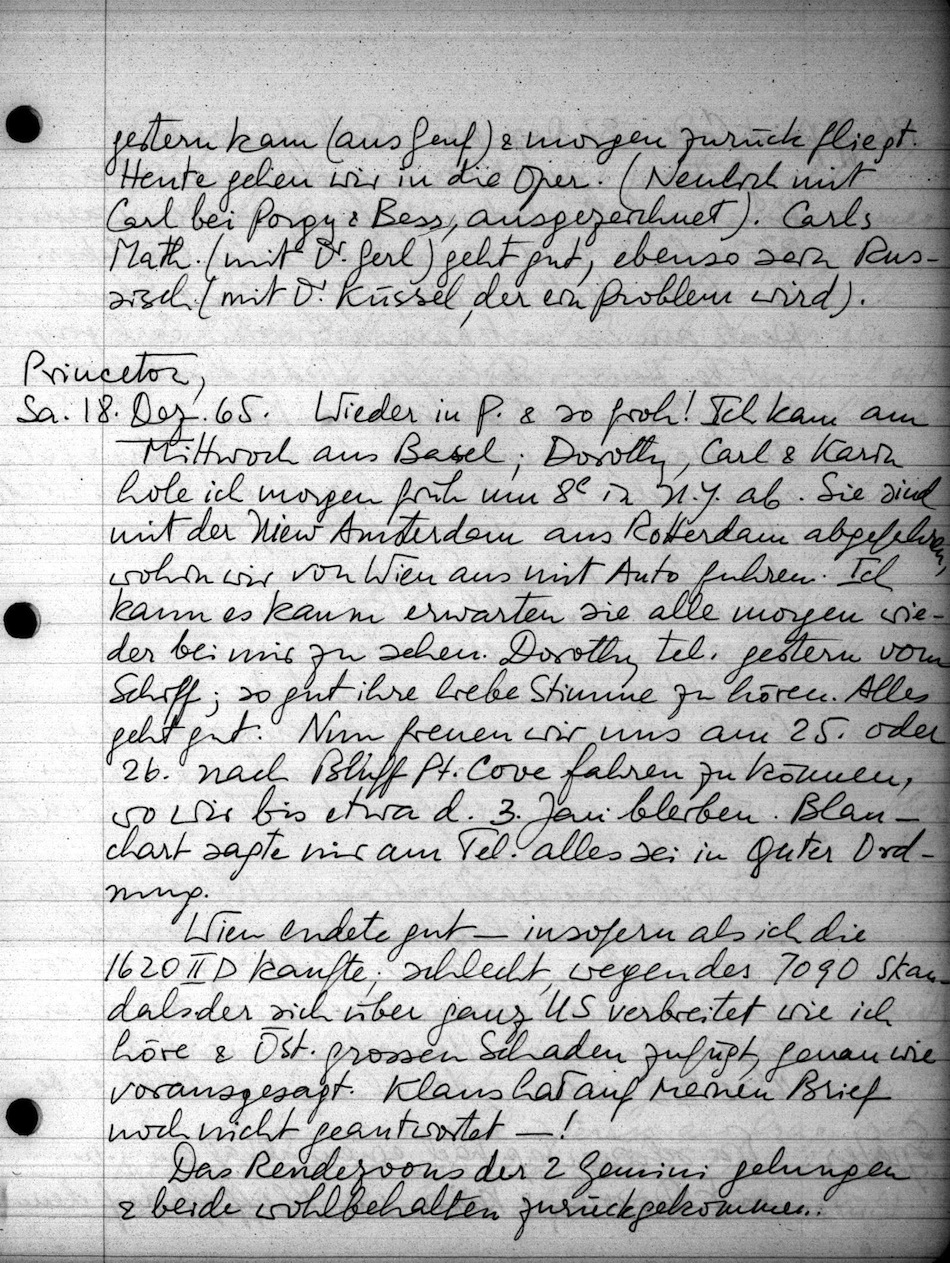 gestern kam (aus Genf) & morgen zurück fliegt.
Heute gehen wir in die Oper. (Neulich mit
Carl bei Porgy & Bess, ausgezeichnet). Carls
Math. (mit Dr. Gerl) geht gut, ebenso sein Rus-
sisch (mit Dr. Küssel, der ein Problem wird).
Princeton,
Sa. 18. Dez. 65. Wieder in P. & so froh! Ich kam am
Mittwoch aus Basel; Dorothy, Carl & Karin
hole ich morgen früh um 8ᵉ in N.Y. ab. Sie sind
mit der Niew Amsterdam aus Rotterdam abgefahren,
wohin wir von Wien aus mit Auto fuhren. Ich
kann es kaum erwarten sie alle morgen wie-
der bei mir zu sehen. Dorothy tel. gestern vom
Schiff; so gut ihre liebe Stimme zu hören. Alles
geht gut. Nun freuen wir uns am 25. oder
26. nach Bluff Pt. Cove fahren zu können,
wo wir bis etwa d. 3. Jan. bleiben. Blan-
chart sagte mir am Tel. alles sei in guter Ord-
nung.
Wien endete gut — insofern als ich die
1620 II D kaufte; schlecht, wegen des 7090 Skan-
dals der sich über ganz US verbreitet wie ich
höre & Öst. grossen Schaden zufügt, genau wie
vorausgesagt. Klaus hat auf meinen Brief
noch nicht geantwortet —!
Das Rendezvous der 2 Gemini gelungen
& beide wohlbehalten zurückgekommen..